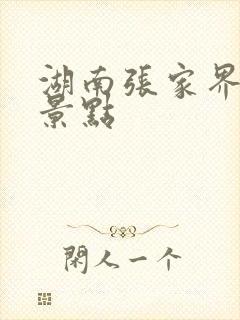 湖南張家界
景點
閑人一个